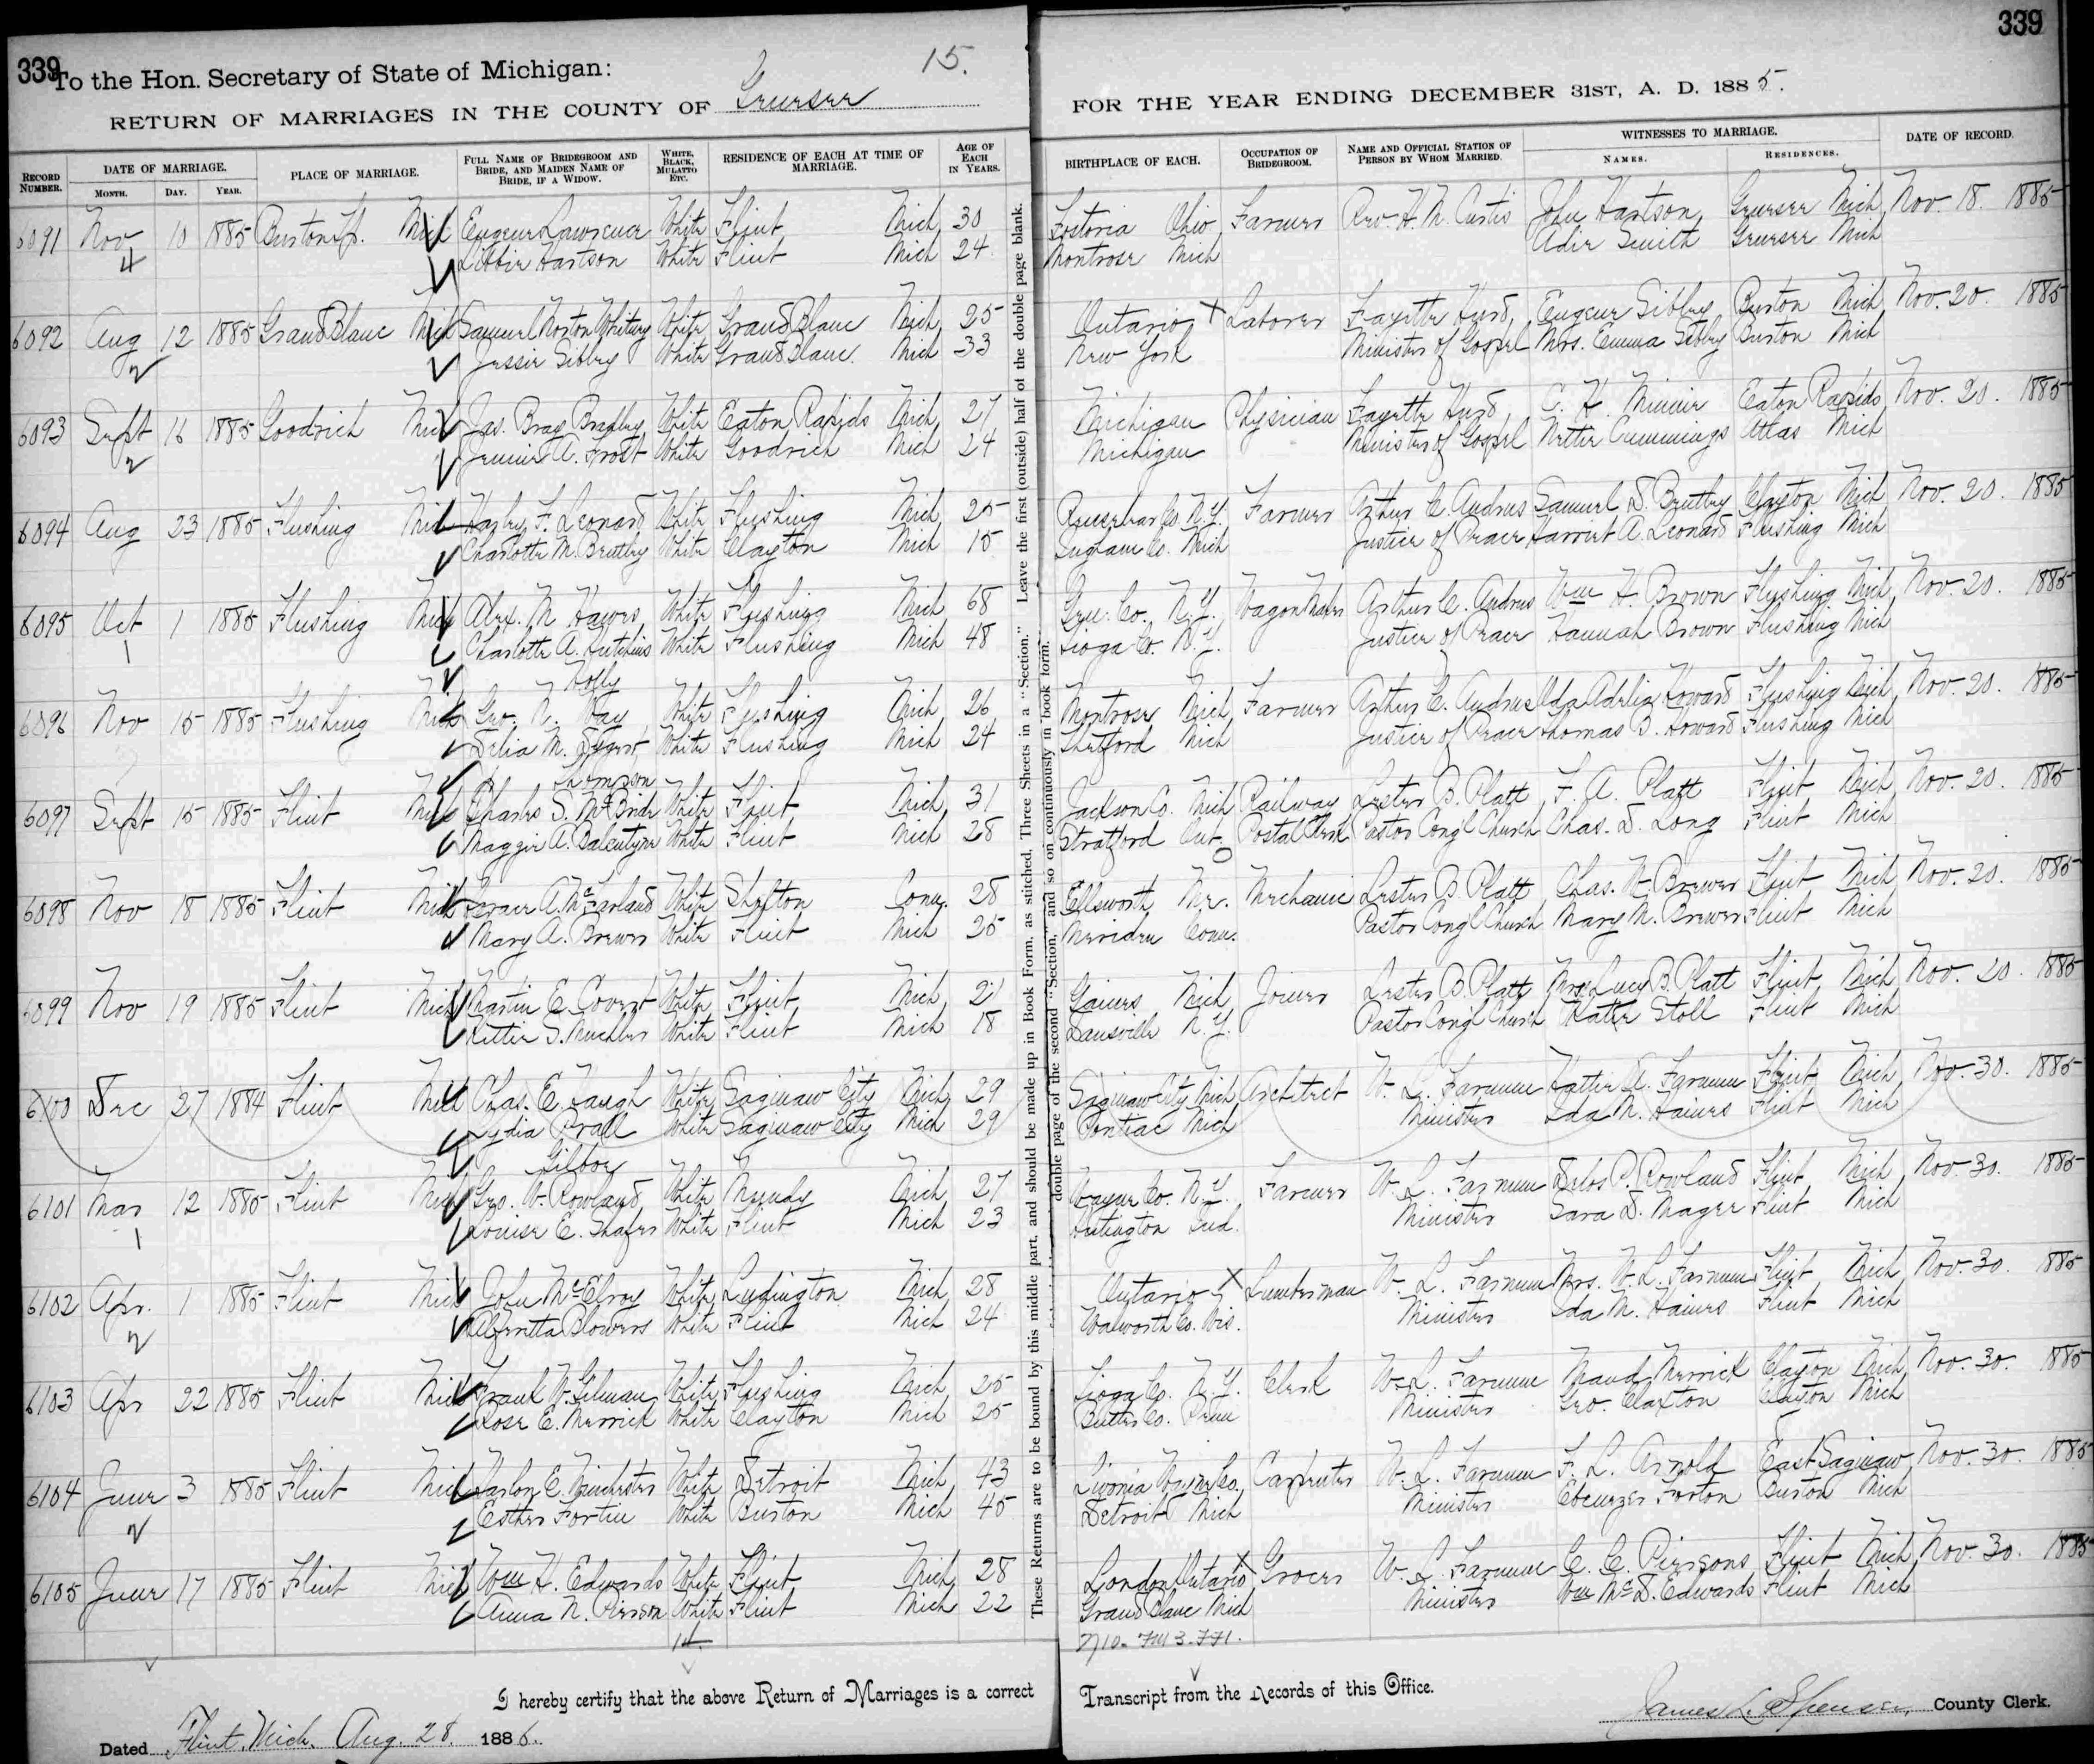 339 339
15.
To the Hon. Secretary of State of Michigan:
RETURN OF MARRIAGES IN THE COUNTY OF Genesee FOR THE YEAR ENDING DECEMBER 31ST, A. D. 1885.
RECORD NUMBER. DATE OF MARRIAGE. MONTH. DAY. YEAR. PLACE OF MARRIAGE. FULL NAME OF BRIDEGROOM AND BRIDE, AND MAIDEN NAME OF BRIDE, IF A WIDOW. WHITE, BLACK, MULATTO ETC. RESIDENCE OF EACH AT TIME OF MARRIAGE. AGE OF EACH IN YEARS. BIRTHPLACE OF EACH. OCCUPATION OF BRIDEGROOM. NAME AND OFFICIAL STATION OF PERSON BY WHOM MARRIED. WITNESSES TO MARRIAGE. NAMES. RESIDENCES. DATE OF RECORD.
6091 Nov 10 1885 Burton Tp. Mich Eugene Lawrence White Flint Mich 30 Fostoria Ohio Farmer Rev. H. N. Curtis John Hartson Genesee Mich Nov. 18. 1885
4 Libbie Hartson White Flint Mich 24 Montrose Mich Adie Smith Genesee Mich
6092 Aug 12 1885 Grand Blanc Mich Samuel Norton Whitney White Grand Blanc Mich 25 Ontario X Laborer Fayette Hurd, Eugene Sibley Burton Mich Nov. 20. 1885
2 Jessie Sibley White Grand Blanc Mich 33 New York Minister of Gospel Mrs. Emma Sibley Burton Mich
6093 Sept 16 1885 Goodrich Mich Jas. Bray Bradley White Eaton Rapids Mich 27 Michigan Physician Fayette Hurd, C. H. Minnie Eaton Rapids Nov. 20. 1885
2 Jennie A. Frost White Goodrich Mich 24 Michigan Minister of Gospel Nettie Cummings Atlas Mich
6094 Aug 23 1885 Flushing Mich Harley F. Leonard White Flushing Mich 25 Rensselaer Co. N.Y. Farmer Arthur C. Andrus Samuel D. Brutley Clayton Mich Nov. 20. 1885
Charlotte M. Brutley White Clayton Mich 15 Ingham Co. Mich Justice of Peace Harriet A. Leonard Flushing Mich
6095 Oct 1 1885 Flushing Mich Alex. M Hawes White Flushing Mich 68 Gen. Co. N.Y. Wagon Maker Arthur C. Andrus Wm H. Brown Flushing Mich Nov. 20. 1885
1 Charlotte A. Hutchins White Flushing Mich 48 Tioga Co. N.Y. Justice of Peace Hannah Brown Flushing Mich
Holly
6096 Nov 15 1885 Flushing Mich Geo. N. Way White Flushing Mich 26 Montrose Mich Farmer Arthur C. Andrus Ida Adelia Howard Flushing Mich Nov. 20. 1885
Delia M. Dygert White Flushing Mich 24 Thetford Mich Justice of Peace Thomas B. Howard Flushing Mich
Thompson
6097 Sept 15 1885 Flint Mich Charles S. McBride White Flint Mich 31 Jackson Co. Mich Railway Lester B. Platt F. A. Platt Flint Mich Nov. 20. 1885
Maggie A. Balentyne White Flint Mich 28 Stratford Ont. Postal Clerk Pastor Cong'l Church Chas. D. Long Flint Mich
6098 Nov 18 1885 Flint Mich Horace A. McFarland White Shelton Conn. 28 Ellsworth Me. Mechanic Lester B. Platt Chas. H. Brewer Flint Mich Nov. 20. 1885
Mary A. Brewer White Flint Mich 25 Meriden Conn. Pastor Cong'l Church Mary M. Brewer Flint Mich
6099 Nov 19 1885 Flint Mich Martin E. Covert White Flint Mich 21 Gaines Mich Joiner Lester B. Platt Mrs. Lucy B. Platt Flint Mich Nov. 20. 1885
Kittie S. Muchler White Flint Mich 18 Dansville N.Y. Pastor Cong'l Church Katie Stoll Flint Mich
6100 Dec 27 1884 Flint Mich Chas. E. Gaugh White Saginaw City Mich 29 Saginaw City Mich Architect W. L. Farnum Hattie A. Farnum Flint Mich Nov. 30. 1885
Lydia Prall White Saginaw City Mich 29 Pontiac Mich Minister Ida M. Haines Flint Mich
Gilboy
6101 Mar 12 1885 Flint Mich Geo. W. Rowland White Mundy Mich 27 Wayne Co. N.Y. Farmer W. L. Farnum Delos P. Rowland Flint Mich Nov. 30. 1885
1 Louise E. Shafer White Flint Mich 23 Hutington Ind. Minister Sara D. Mager Flint Mich
6102 Apr. 1 1885 Flint Mich John McElroy White Ludington Mich 28 Ontario X Lumberman W. L. Farnum Mrs. W. L. Farnum Flint Mich Nov. 30. 1885
2 Alfretta Blowers White Flint Mich 24 Walworth Co. Wis. Minister Ida M. Haines Flint Mich
6103 Apr 22 1885 Flint Mich Frank W. Gilman White Flushing Mich 25 Tioga Co. N.Y. Clerk W. L. Farnum Maud Merrick Clayton Mich Nov. 30. 1885
Rose E. Merrick White Clayton Mich 25 Butler Co. Penn Minister Geo. Claxton Clayton Mich
6104 June 3 1885 Flint Mich Harlon E. Winchester White Detroit Mich 43 Livonia Wayne Co. Carpenter W. L. Farnum F. L. Arnold East Saginaw Nov. 30. 1885
2 Esther Fortin White Burton Mich 45 Detroit Mich Minister Ebenezer Forton Burton Mich
6105 June 17 1885 Flint Mich Wm H. Edwards White Flint Mich 28 London Ontario X Grocer W. L. Farnum C. C. Piersons Flint Mich Nov. 30. 1885
Anna N. Pierson White Flint Mich 22 Grand Blanc Mich Minister Wm McD. Edwards Flint Mich
14.
These Returns are to be bound by this middle part, and should be made up in Book Form, as stitched, Three Sheets in a "Section." Leave the first (outside) half of the double page blank.
double page of the second "Section," and so on continuously in book form.
I hereby certify that the above Return of Marriages is a correct Transcript from the Records of this Office.
James L. Spencer, County Clerk.
Dated Flint, Mich. Aug. 28. 1886.